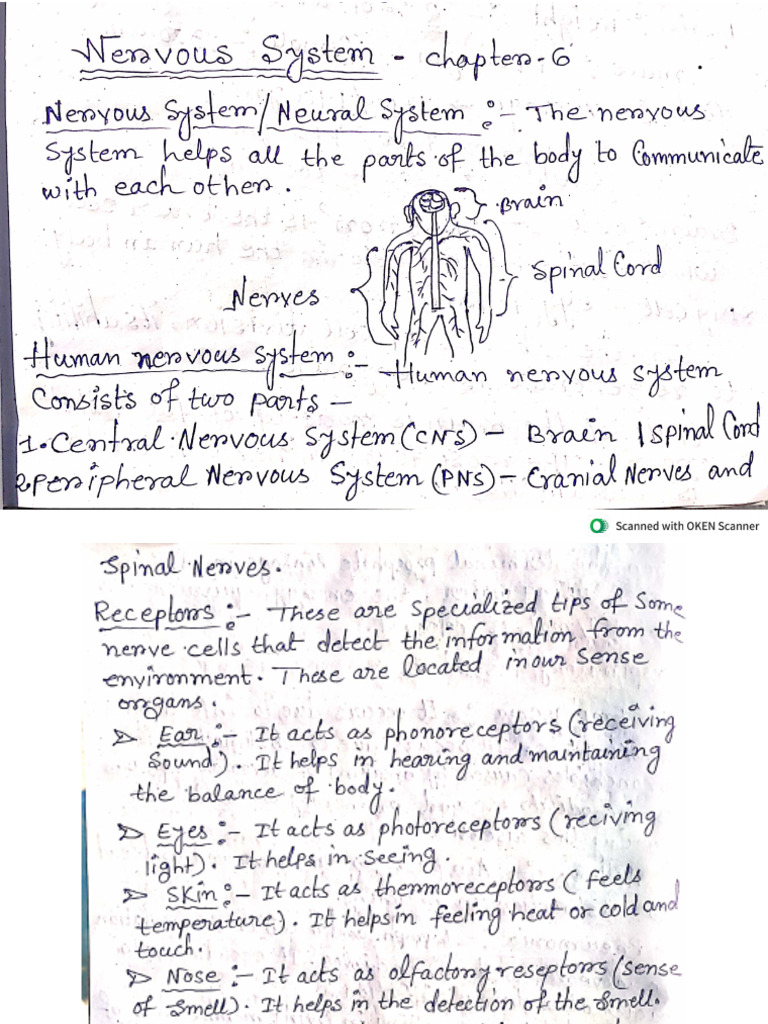 Nervous System - chapter-6
Nervous System/Neural System :- The nervous
System helps all the parts of the body to Communicate
with each other.
Brain
Spinal Cord
Nerves
Human nervous system :- Human nervous system
Consists of two parts —
1. Central Nervous System (CNS) - Brain | Spinal Cord
2. Peripheral Nervous System (PNS) - Cranial Nerves and
Scanned with OKEN Scanner
Spinal Nerves.
Receptors :- These are specialized tips of some
nerve cells that detect the information from the
environment. These are located in our sense
organs.
➤ Ear :- It acts as phonoreceptors (receiving
Sound). It helps in hearing and maintaining
the balance of body.
➤ Eyes :- It acts as photoreceptors (reciving
light). It helps in seeing.
➤ Skin :- It acts as thermoreceptors (feels
temperature). It helps in feeling heat or cold and
touch.
➤ Nose :- It acts as olfactory reseptors (sense
of smell). It helps in the detection of the smell.